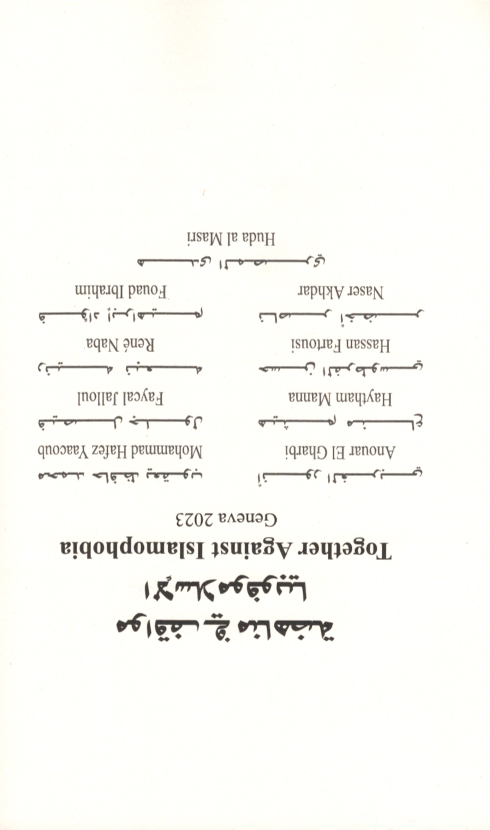 مواقف في مناهضة
الإسلاموفوبيا
Together Against Islamophobia
Geneva 2023
أنور الغربي
محمد حافظ يعقوب
Anouar El Gharbi
Mohammad Hafez Yaacoub
هيثم مناع
فيصل جلول
Haytham Manna
Fayçal Jalloul
حسن الفرطوسي
رينيه نبعه
Hassan Fartousi
René Naba
ناصر أخضر
فؤاد إبراهيم
Naser Akhdar
Fouad Ibrahim
هدى المصري
Huda al Masri